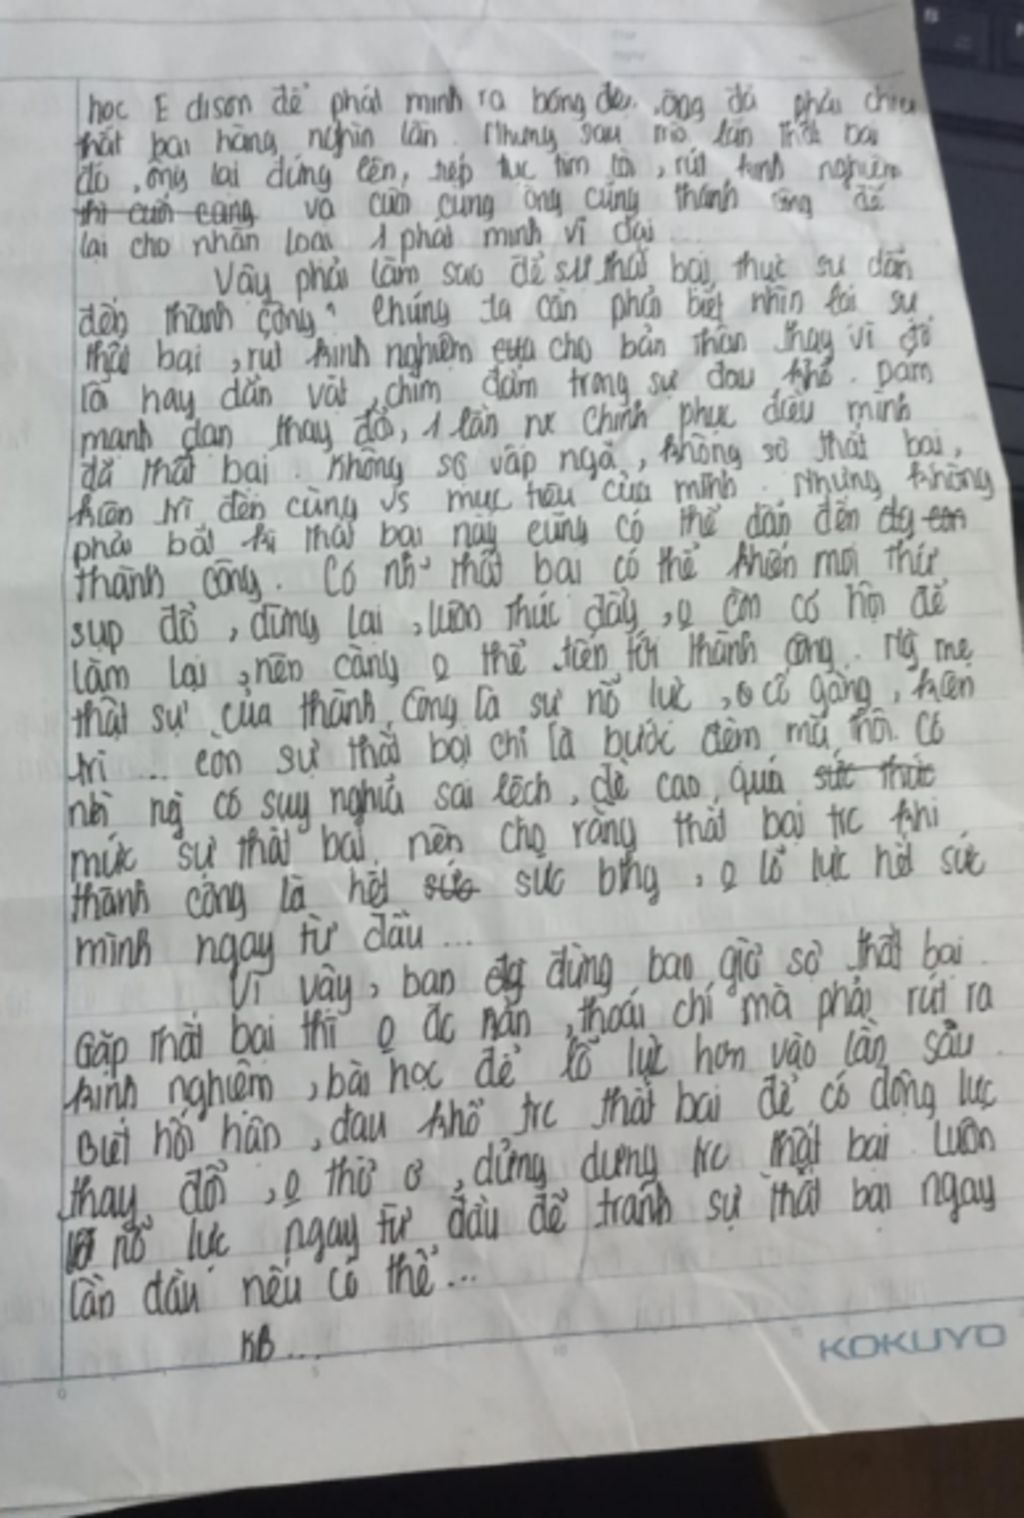 học E dison để phát minh ra bóng đèn, ông đã phải chịu
thất bại hàng nghìn lần. Nhưng sau mỗi lần thất bại
đó, ông lại đứng lên, tiếp tục tìm tòi, rút kinh nghiệm
thì cuối cùng và cuối cùng ông cũng thành công để
lại cho nhân loại 1 phát minh vĩ đại...
Vậy phải làm sao để sự thất bại thực sự dẫn
đến thành công? Chúng ta cần phải biết nhìn lại sự
thất bại, rút kinh nghiệm cho bản thân thay vì đổ
là hay dằn vặt, chìm đắm trong sự đau khổ. Dám
mạnh dạn thay đổi, 1 lần nx chinh phục điều mình
đã thất bại. Không sợ vấp ngã, không sợ thất bại,
kiên trì đến cùng vs mục tiêu của mình. Nhưng không
phải bất kì thất bại nào cũng có thể dẫn đến
thành công. Có nh~ thất bại có thể khiến mọi thứ
sụp đổ, dừng lại, luôn thúc đẩy, o còn có hội để
làm lại, nên càng o thể tiến tới thành công. Ng mẹ
thật sự của thành công là sự nỗ lực, cố gắng, kiên
trì ... còn sự thất bại chỉ là bước đệm mà thôi. Có
nh~ ng có suy nghĩ sai lệch, đề cao quá sức thức
mức sự thất bại nên cho rằng thất bại trc khi
thành công là hết sức bthg, o lỗ lực hết sức
mình ngay từ đầu ...
Vì vậy, bạn đừng bao giờ sợ thất bại.
Gặp thất bại thì o đc nản, thoái chí mà phải rút ra
kinh nghiệm, bài học để lỗ lực hơn vào lần sau.
Biết hối hận, đau khổ trc thất bại để có động lực
thay đổi, o thờ ơ, dửng dưng trc thất bại. Luôn
nỗ lực ngay từ đầu để tránh sự thất bại ngay
lần đầu nếu có thể...
KB...
KOKUYO
0 5 10 15